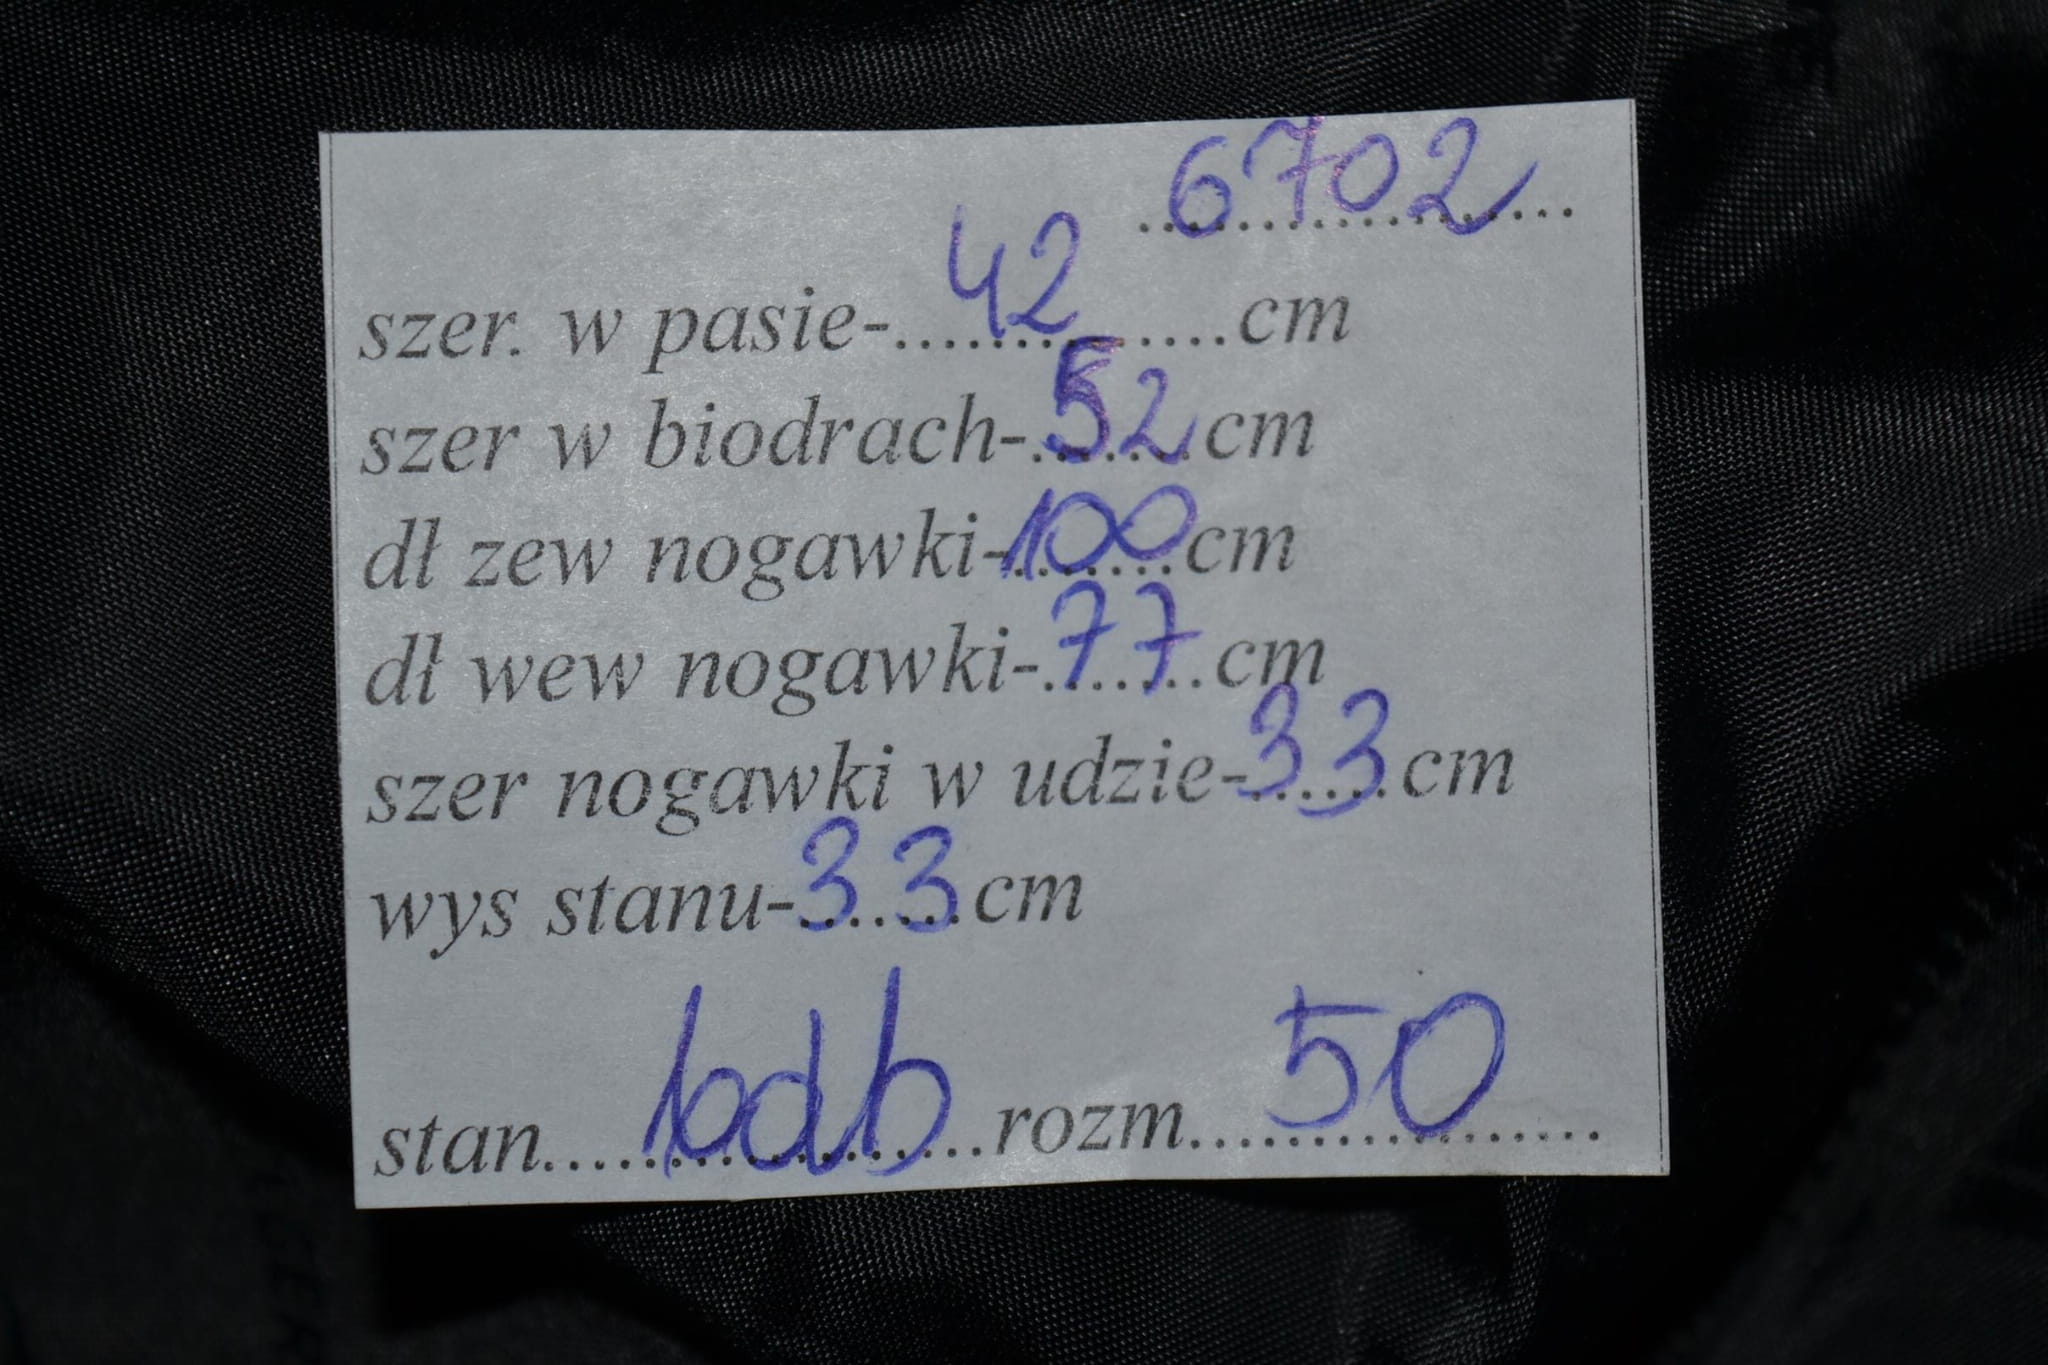 6702
szer. w pasie-42cm
szer w biodrach-52cm
dł zew nogawki-100cm
dł wew nogawki-77cm
szer nogawki w udzie-33cm
wys stanu-33cm
stan....bdb....rozm....50....